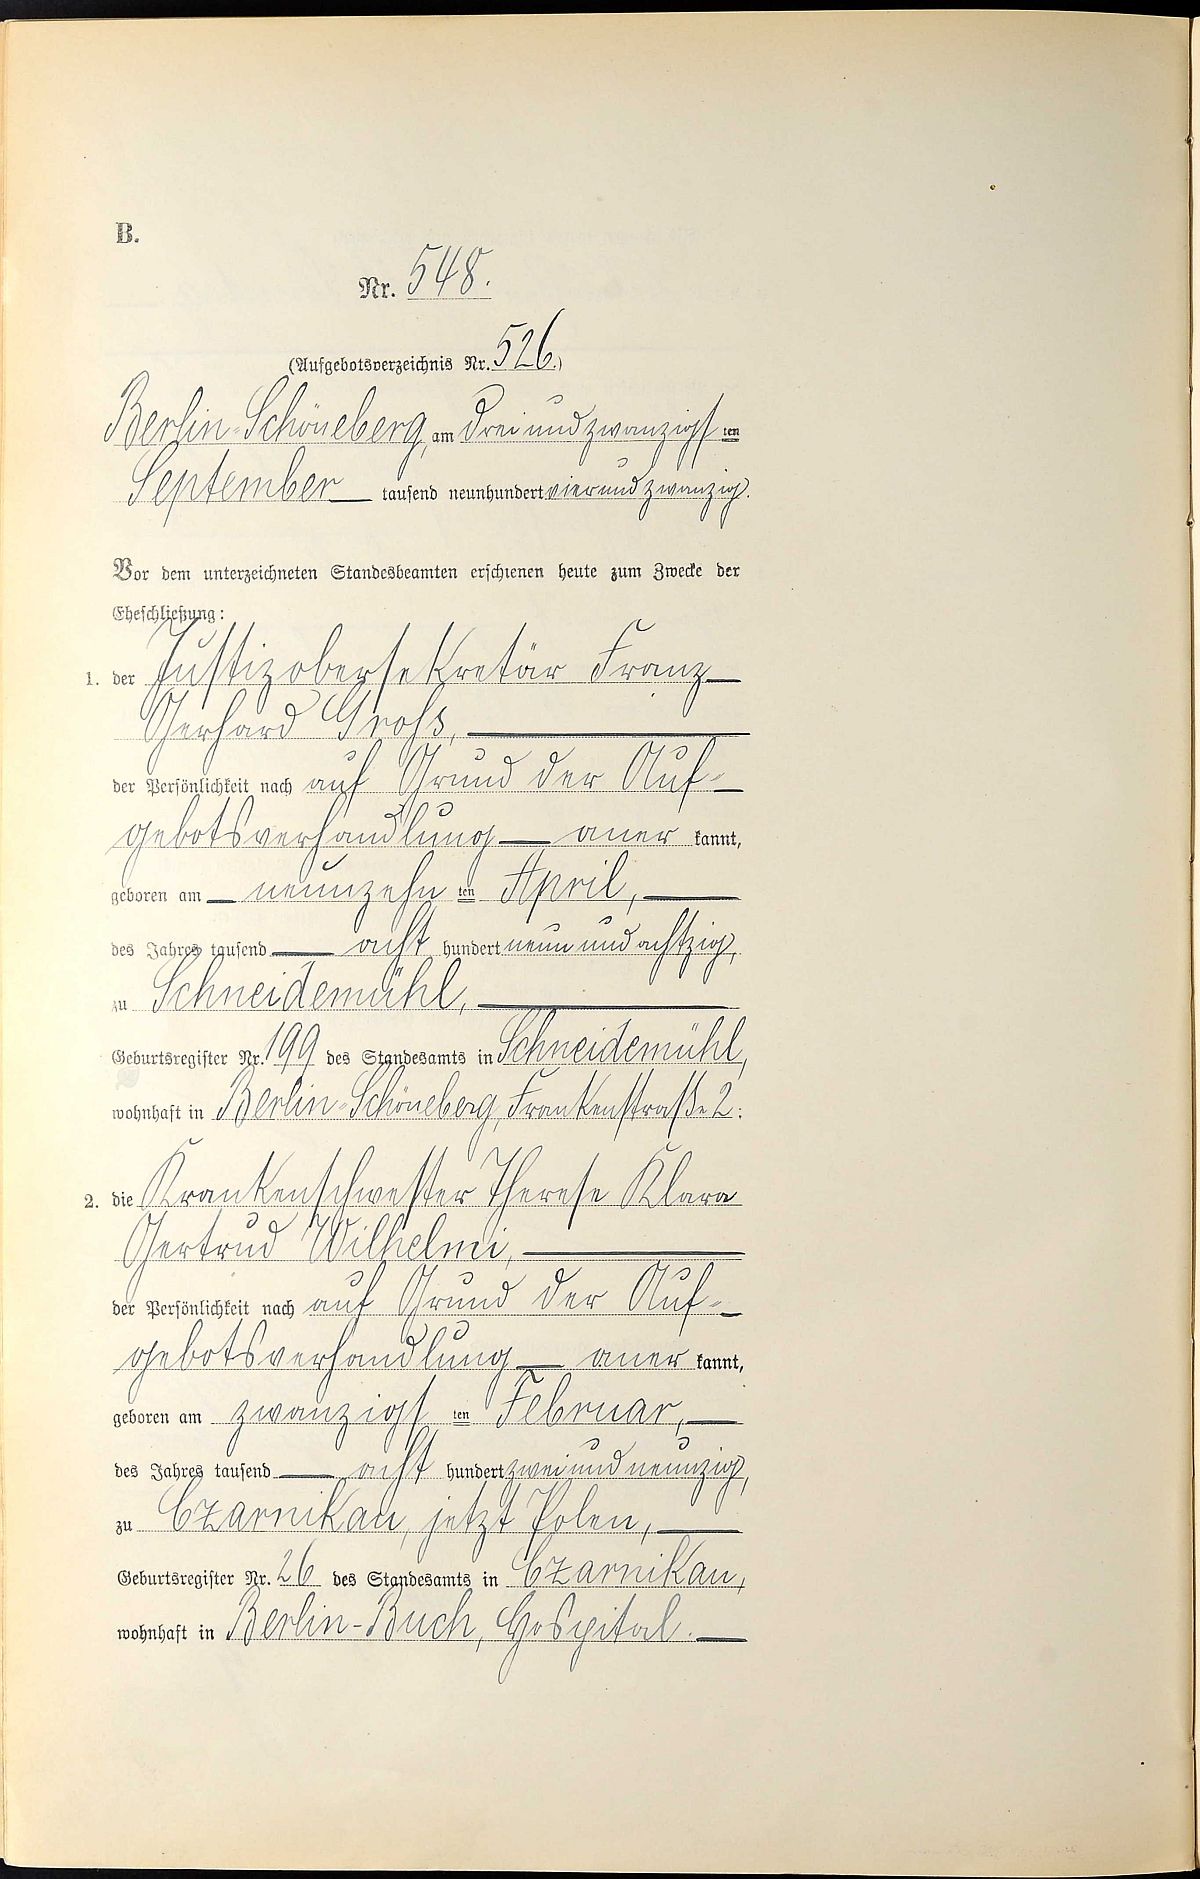 B.
Nr. 548.
(Aufgebotsverzeichnis Nr. 526.)
Berlin-Schöneberg, am drei und zwanzigsten
September tausend neunhundert vier und zwanzig.
Vor dem unterzeichneten Standesbeamten erschienen heute zum Zwecke der
Eheschließung:
1. der Justizobersekretär Franz
Gerhard Groß,
der Persönlichkeit nach auf Grund der Auf-
gebotsverhandlung anerkannt,
geboren am neunzehnten April,
des Jahres tausend acht hundert neun und achtzig,
zu Schneidemühl,
Geburtsregister Nr. 199 des Standesamts in Schneidemühl,
wohnhaft in Berlin-Schöneberg, Frankenstraße 2:
2. die Krankenschwester Therese Klara
Gertrud Wilhelmi,
der Persönlichkeit nach auf Grund der Auf-
gebotsverhandlung anerkannt,
geboren am zwanzigsten Februar,
des Jahres tausend acht hundert zwei und neunzig,
zu Czarnikau, jetzt Polen,
Geburtsregister Nr. 26 des Standesamts in Czarnikau,
wohnhaft in Berlin-Buch, Hospital.